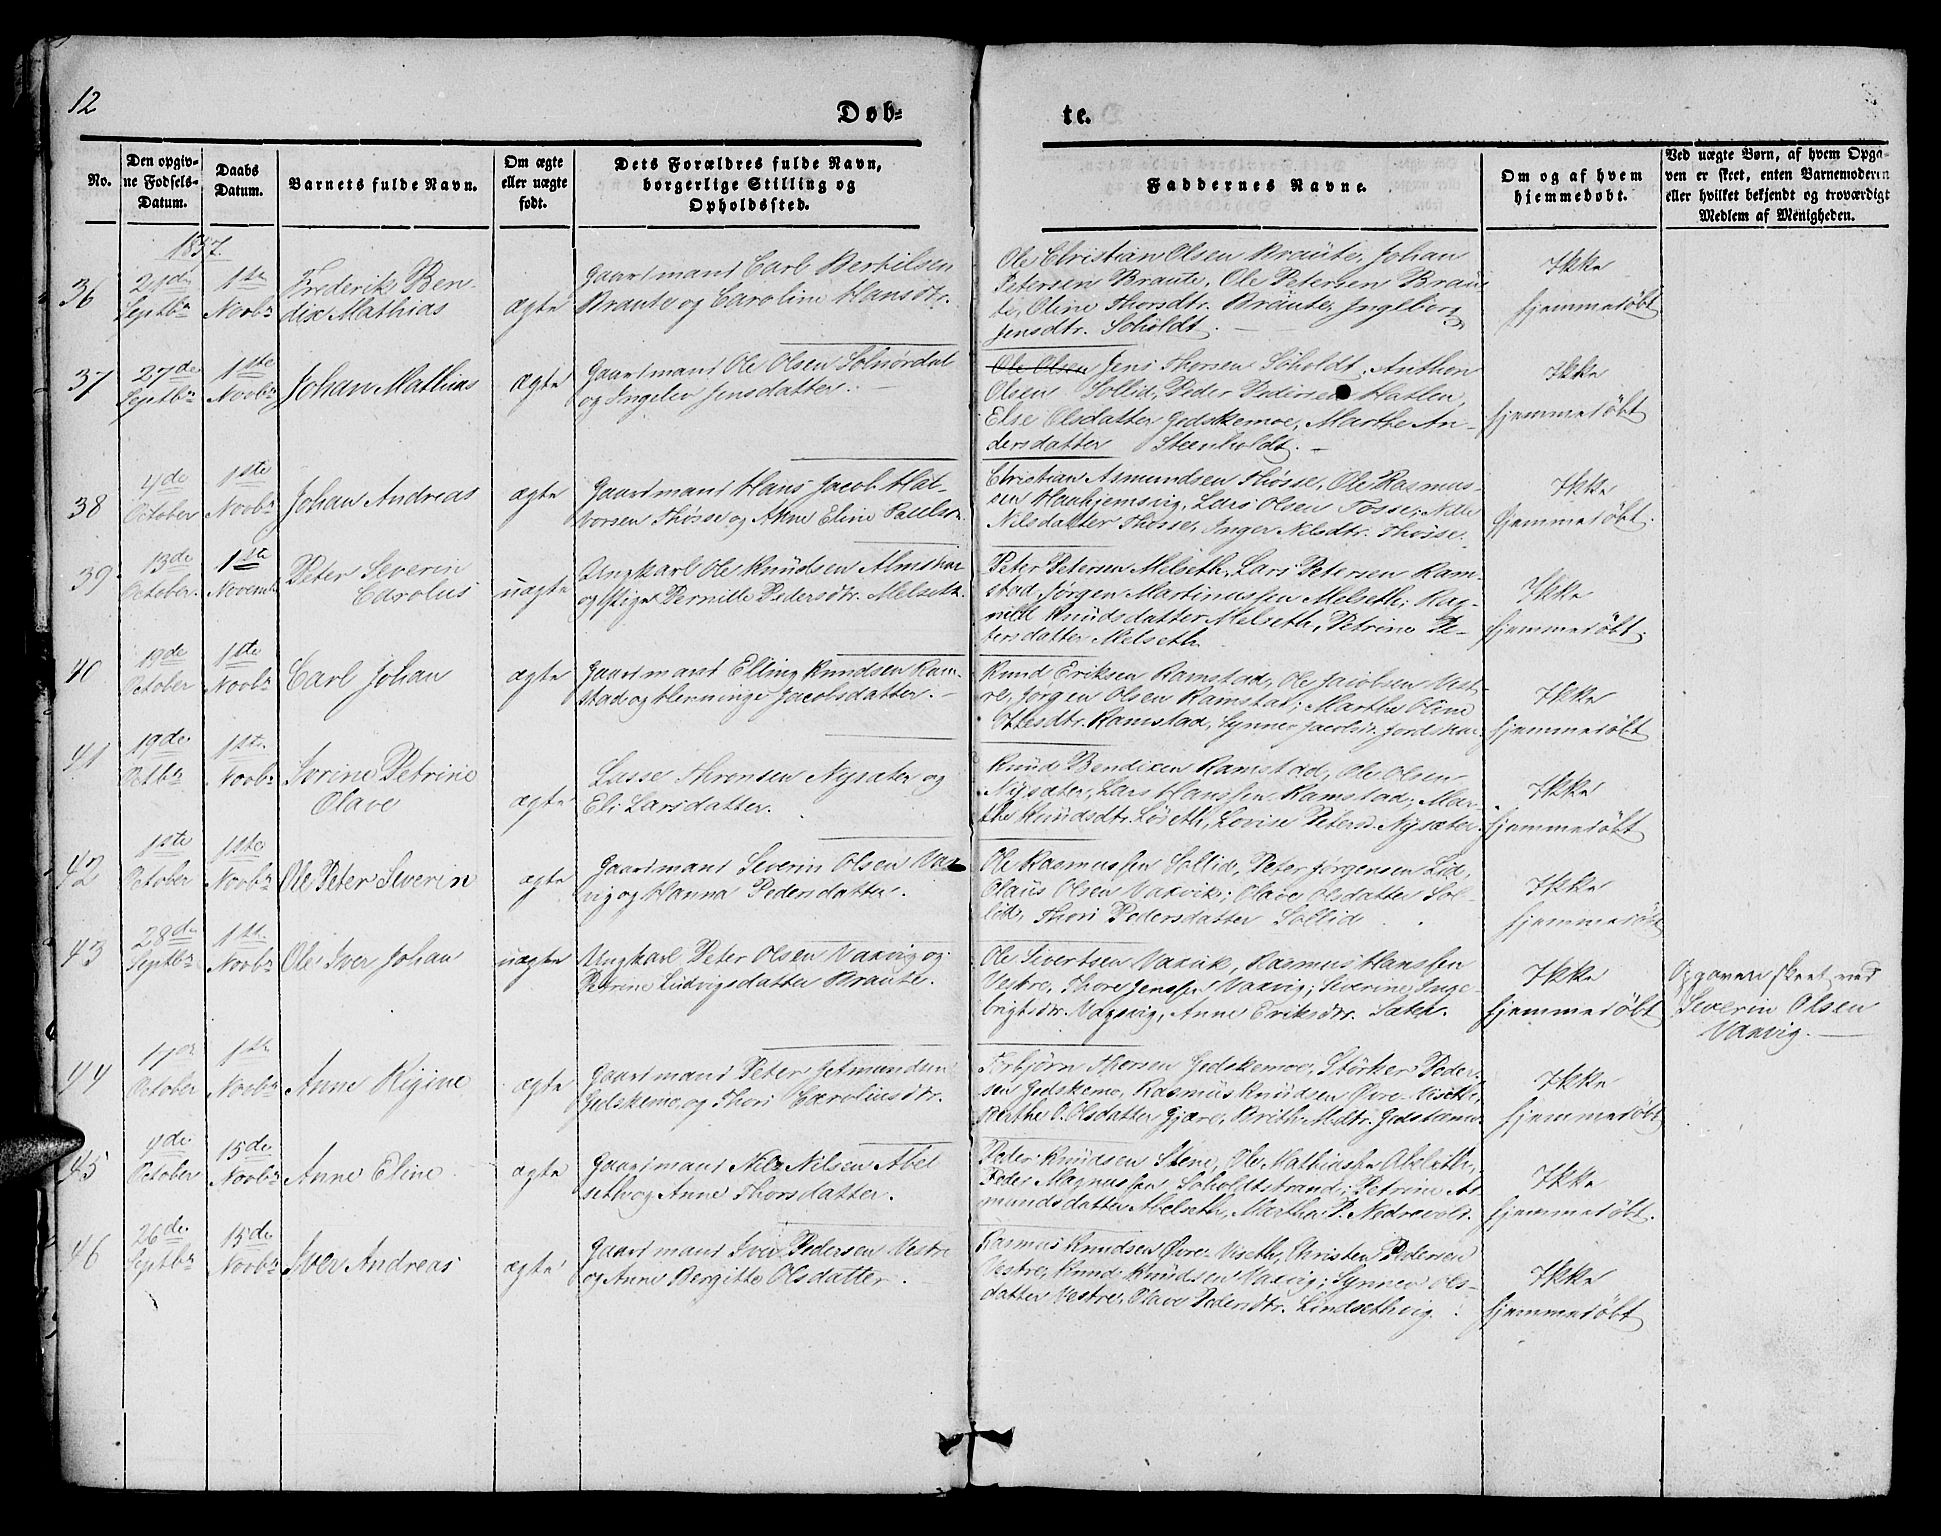 12
Døb-
te.
No.
Den opgiv-
ne Fødsels-
Datum.
Daabs
Datum.
Barnets fulde Navn.
Om ægte
eller uægte
født.
Dets Forældres fulde Navn,
borgerlige Stilling og
Opholdssted.
Faddernes Navne.
Om og af hvem
hjemmedøbt.
Ved uægte Børn, af hvem Opga-
ven er skeet, enten Barnemoderen
eller hvilket bekjendt og troværdigt
Medlem af Menigheden.
1857.
36
Septbr
1ste
Noobr
Frederik Ben-
dix Mathias
ægte
Gaardmand Carl Bertilsen
Braute og Caroline Hansdtr.
Ole Christian Olsen Braute, Johan
Petersen Braute, Ole Petersen Brau-
te, Oline Thorsdtr. Braute, Ingeborg
Jensdtr. Soholdt.
Ikke
hjemmedøbt
37
27de
Septbr
1ste
Noobr
Johan Mathias
ægte
Gaardmand Ole Olsen Solnørdal
og Ingelev Jensdatter.
Ole Olsen Jens Thorsen Søholdt, Anthon
Olsen Sollid, Peder Pedersen Hatlen,
Else Olsdatter Gjedskemoe, Marthe An-
dersdatter Steenholdt.
Ikke
hjemmedøbt
38
4de
October
1ste
Noobr
Johan Andreas
ægte
Gaardmand Hans Jacob Hal-
vorsen Thøsse og Anne Eline Paulsd.
Christian Asmundsen Thøsse, Ole Rasmus-
sen Haahjemsvig, Lars Olsen Tosse, Nille
Nilsdatter Thøsse, Inger Nilsdtr. Thøsse.
Ikke
hjemmedøbt.
39
13de
October.
1ste
Novemb
Peter Severin
Carolus
uægte
Ungkarl Ole Knudsen
og Pige Pernille Pedersdtr. Melseth.
Peter Petersen Melseth, Lars Petersen Ram-
stad, Jørgen Martinussen Melseth; Rag-
nild Knudsdatter Melseth, Petrine Pe-
tersdatter Melseth.
Ikke
hjemmedøbt.
40
19de
October
1ste
Noobr
Carl Johan
ægte
Gaardmand Elling Knudsen Ram-
stad og Henninge Jacobsdatter.
Knud Eriksen Ramstad, Ole Jacobsen Vest-
re, Jørgen Olsen Ramstad; Marthe Oline
Ottesdtr. Ramstad, Synnev Jacobsd.
Ikke
hjemmedøbt
41
19de
Octbr
1ste
Noobr
Sorine Petrine
Olave
ægte
Lasse Nysæter og
Eli Larsdatter.
Knud Bendixen Ramstad, Ole Olsen
Nysæter, Lars Hanssen Ramstad; Mar-
the Knudsdtr. Løseth, Lovise Petersd. Nysæter.
Ikke
hjemmedøbt
42
1ste
October
1ste
Noobr
Ole Peter Severin
ægte
Gaardmand Severin Olsen Vax-
vig og Hanna Pedersdatter.
Ole Rasmussen Sollid, Peter Jørgensen Lid,
Olaus Olsen Vaxvik; Olave Olsdatter Sol-
lid, Thori Pedersdatter Sollid
Ikke
hjemmedøbt
43
28de
Septbr
1ste
Noobr
Ole Iver Johan
uægte
Ungkarl Peter Olsen Vaxvig og
Petrine Ludvigsdatter Braute.
Ole Sivertsen Vaxvik, Rasmus Hanssen
Vestre, Thore Jenssen Vaxvig; Severine Inge-
brigtsdtr. Vagsvig, Anne Eriksdtr. Sæter.
Ikke
hjemmedøbt
Opgaven skeet ved
Severin Olsen
Vaxvig.
44
October
1ste
Noobr
Anne Rigine
ægte
Gaardmand Peter
Gidskemo og Thori Caroliusdtr.
Thorsen Gedskemoe, Størker Peder-
sen Gedskemo, Rasmus Knudsen Øvre-Viseth,
O. Olsdatter Gjære, Brith
Ikke
hjemmedøbt
45
4de
October
15de
Noobr
Anne Eline
ægte
Gaardmand Nils Nilsen Abel
seth og Anne Thorsdatter.
Peder Knudsen Stene, Ole Mathiassen Abelseth,
Peder Magnussen Soholdtstrand; Petrine As-
mundsdatter Abelseth, Martha P. Nedrevold.
Ikke
hjemmedøbt.
46
26de
Septbr
15de
Noobr
Iver Andreas
ægte
Gaardmand Iver Pedersen Vestre
og Anne Bergitte Olsdatter.
Rasmus Knudsen Øvre-Viseth, Christen Pedersen
Vestre, Knud Knudsen Vaxvig; Synnev Ols-
datter Vestre, Olave Pedersdtr. Lindsethvig.
Ikke
hjemmedøbt